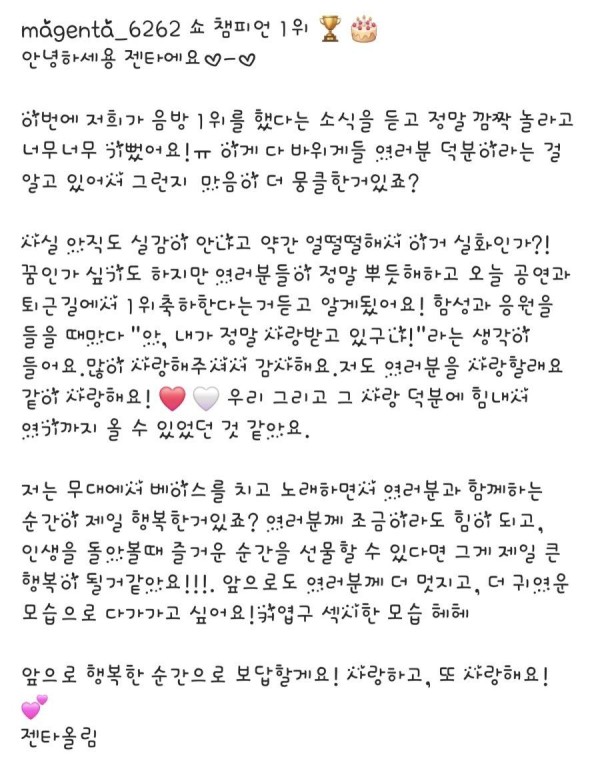 magenta_6262 쇼 챔피언 1위 🏆 🎂
안녕하세용 젠타에요♡-♡
이번에 저희가 음방 1위를 했다는 소식을 듣고 정말 깜짝 놀라고
너무너무 기뻤어요!ㅠ 이게 다 바위게들 여러분 덕분이라는 걸
알고 있어서 그런지 마음이 더 뭉클한거있죠?
사실 아직도 실감이 안나고 약간 얼떨떨해서 이거 실화인가?!
꿈인가 싶기도 하지만 여러분들이 정말 뿌듯해하고 오늘 공연과
퇴근길에서 1위축하한다는거듣고 알게됬어요! 함성과 응원을
들을 때마다 "아, 내가 정말 사랑받고 있구나!"라는 생각이
들어요.많이 사랑해주셔서 감사해요.저도 여러분을 사랑할래요
같이 사랑해요! ❤️ 🤍 우리 그리고 그 사랑 덕분에 힘내서
여기까지 올 수 있었던 것 같아요.
저는 무대에서 베이스를 치고 노래하면서 여러분과 함께하는
순간이 제일 행복한거있죠? 여러분께 조금이라도 힘이 되고,
인생을 돌아볼때 즐거운 순간을 선물할 수 있다면 그게 제일 큰
행복이 될거같아요!!!. 앞으로도 여러분께 더 멋지고, 더 귀여운
모습으로 다가가고 싶어요!귀엽구 섹시한 모습 헤헤
앞으로 행복한 순간으로 보답할게요! 사랑하고, 또 사랑해요!
💕
젠타올림